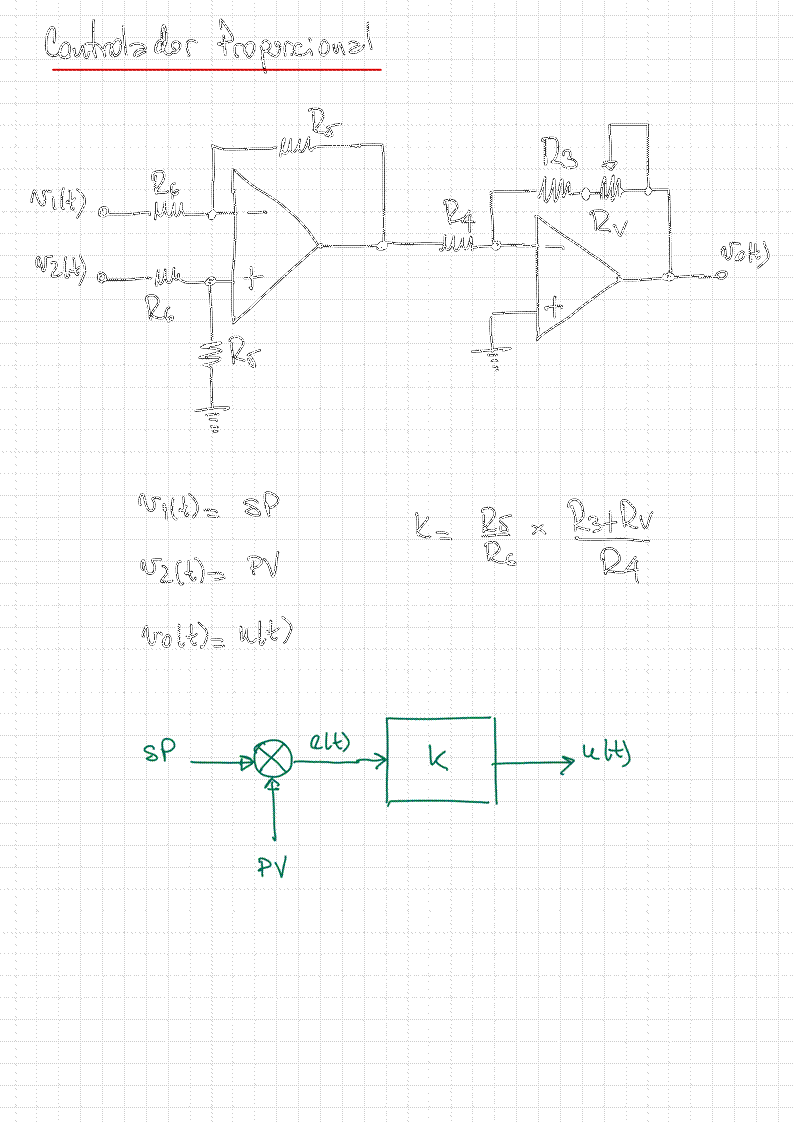 Controlador Proporcional
R5
R6
v1(t)
−
v2(t)
+
R6
R5
R3
R4
RV
−
+
vo(t)
v1(t) = SP
v2(t) = PV
vo(t) = u(t)
K = R5/R6 × (R3+RV)/R4
SP
e(t)
K
u(t)
PV